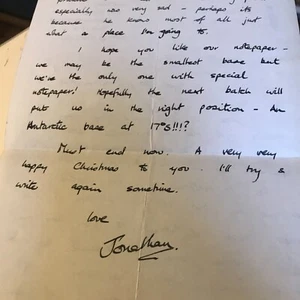 especially was very sad - perhaps it's
because he knows most of all just
what a place I'm going to.
I hope you like our notepaper -
we may be the smallest base but
we're the only one with special
notepaper! Hopefully the next batch will
put us in the right position - An
Antarctic base at 17°S!!!?
Must end now. A very very
happy Christmas to you. I'll try &
write again sometime.
love
Jonathan.